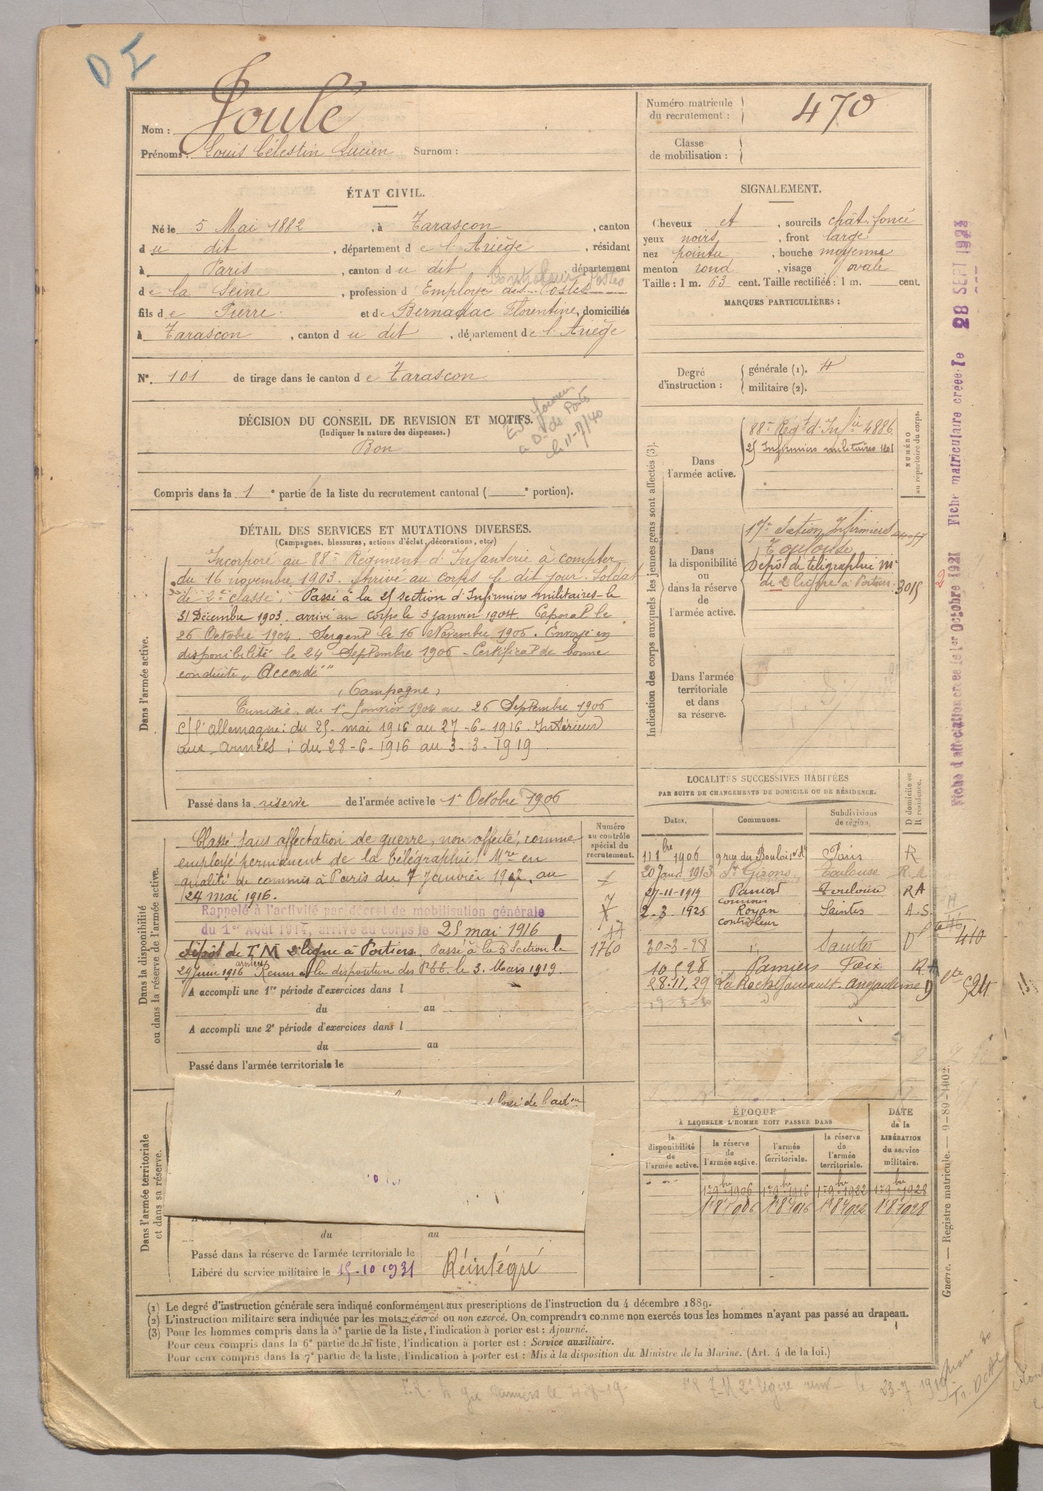 DI
Nom : Joulé
Prénoms : Louis Célestin Lucien Surnom :
Numéro matricule du recrutement : 470
Classe de mobilisation :
ÉTAT CIVIL.
Né le 5 Mai 1882, à Tarascon, canton
du dit, département de l'Ariège, résidant
à Paris, canton du dit, département
de la Seine, profession d Employé des Postes
fils de Pierre et de Bernadac Florentine, domiciliés
à Tarascon, canton du dit, département de l'Ariège
N°. 101 de tirage dans le canton de Tarascon
SIGNALEMENT.
Cheveux et, sourcils chât. foncé
yeux noirs, front large
nez pointu, bouche moyenne
menton rond, visage ovale
Taille : 1 m. 63 cent. Taille rectifiée : 1 m. cent.
MARQUES PARTICULIÈRES :
DÉCISION DU CONSEIL DE REVISION ET MOTIFS.
(Indiquer la nature des dispenses.)
Bon
Compris dans la 1e partie de la liste du recrutement cantonal ( e portion).
Degré d'instruction : générale (1). 4
militaire (2).
DÉTAIL DES SERVICES ET MUTATIONS DIVERSES.
(Campagnes, blessures, actions d'éclat, décorations, etc.)
Dans l'armée active.
Incorporé au 88e Régiment d'Infanterie à compter
du 16 novembre 1903. Arrivé au corps le dit jour. Soldat
de 2e classe. Passé à la 25 section d'Infirmiers militaires le
31 Décembre 1903, arrivé au corps le 3 janvier 1904. Caporal le
26 Octobre 1904. Sergent le 16 Novembre 1905. Envoyé en
disponibilité le 24 Septembre 1906 - Certificat de bonne
conduite "Accordé"
(Campagne)
Tunisie, du 1er Janvier 1904 au 26 Septembre 1906
c/ l'allemagne : du 25 mai 1916 au 27-6-1916. Intérieur
aux armées : du 28-6-1916 au 3-3-1919
Passé dans la réserve de l'armée active le 1er Octobre 1906
Indication des corps auxquels les jeunes gens sont affectés (3).
NUMÉRO au répertoire du corps.
Dans l'armée active.
88e Régt d'Infie 4886
25 Infirmiers militaires
Dans la disponibilité ou dans la réserve de l'armée active.
17e Section Infirmiers
Toulouse
Dépôt de télégraphie Mre
de 2e ligne à Poitiers 3015
Dans l'armée territoriale et dans sa réserve.
Dans la disponibilité ou dans la réserve de l'armée active.
Numéro au contrôle spécial du recrutement.
Classé sans affectation de guerre, non affecté, comme
employé permanent de la télégraphie Mre en
qualité de commis à Paris du 7 Janvier 1907, au
24 mai 1916.
Rappelé à l'activité par décret de mobilisation générale
du 1er Août 1914, arrivé au corps le 25 mai 1916
dépôt de TM 2e ligne à Poitiers. Passé à la 5 section le
29 juin 1916. Remis à la disposition des P.T.T. le 3 Mars 1919.
1
1760
A accompli une 1re période d'exercices dans l
du au
A accompli une 2e période d'exercices dans l
du au
Passé dans l'armée territoriale le
LOCALITÉS SUCCESSIVES HABITÉES
PAR SUITE DE CHANGEMENTS DE DOMICILE OU DE RÉSIDENCE.
Dates. Communes. Subdivisions de région. D domicile ou R résidence.
1906 9 rue du Bouloi Paris R
20 Janv. 1913 St Girons Toulouse R
27-11-1919 Pamiers Toulouse RA
2-3-1925 Royan Saintes
contrôleur
20-3-28 Saintes D
10-5-28 Pamiers Foix
28.11.29 La Rochefoucauld Angoulême D
410
521
Dans l'armée territoriale et dans sa réserve.
du au
Passé dans la réserve de l'armée territoriale le
Libéré du service militaire le 15-10 1931 Réintégré
ÉPOQUE
À LAQUELLE L'HOMME DOIT PASSER DANS
DATE de la LIBÉRATION du service militaire.
la disponibilité de l'armée active. la réserve de l'armée active. l'armée territoriale. la réserve de l'armée territoriale.
1er 9bre 1906 1er 9bre 1916 1er 9bre 1922 1er 9bre 1928
(1) Le degré d'instruction générale sera indiqué conformément aux prescriptions de l'instruction du 4 décembre 1889.
(2) L'instruction militaire sera indiquée par les mots exercé ou non exercé. On comprendra comme non exercés tous les hommes n'ayant pas passé au drapeau.
(3) Pour les hommes compris dans la 5e partie de la liste, l'indication à porter est : Ajourné.
Pour ceux compris dans la 6e partie de la liste, l'indication à porter est : Service auxiliaire.
Pour ceux compris dans la 7e partie de la liste, l'indication à porter est : Mis à la disposition du Ministre de la Marine. (Art. 4 de la loi.)
Fiche d'affectation créée le 1er Octobre 1921 Fiche matriculaire créée le 28 SEPT 1921
Guerre. — Registre matricule. — 9-89-1902.